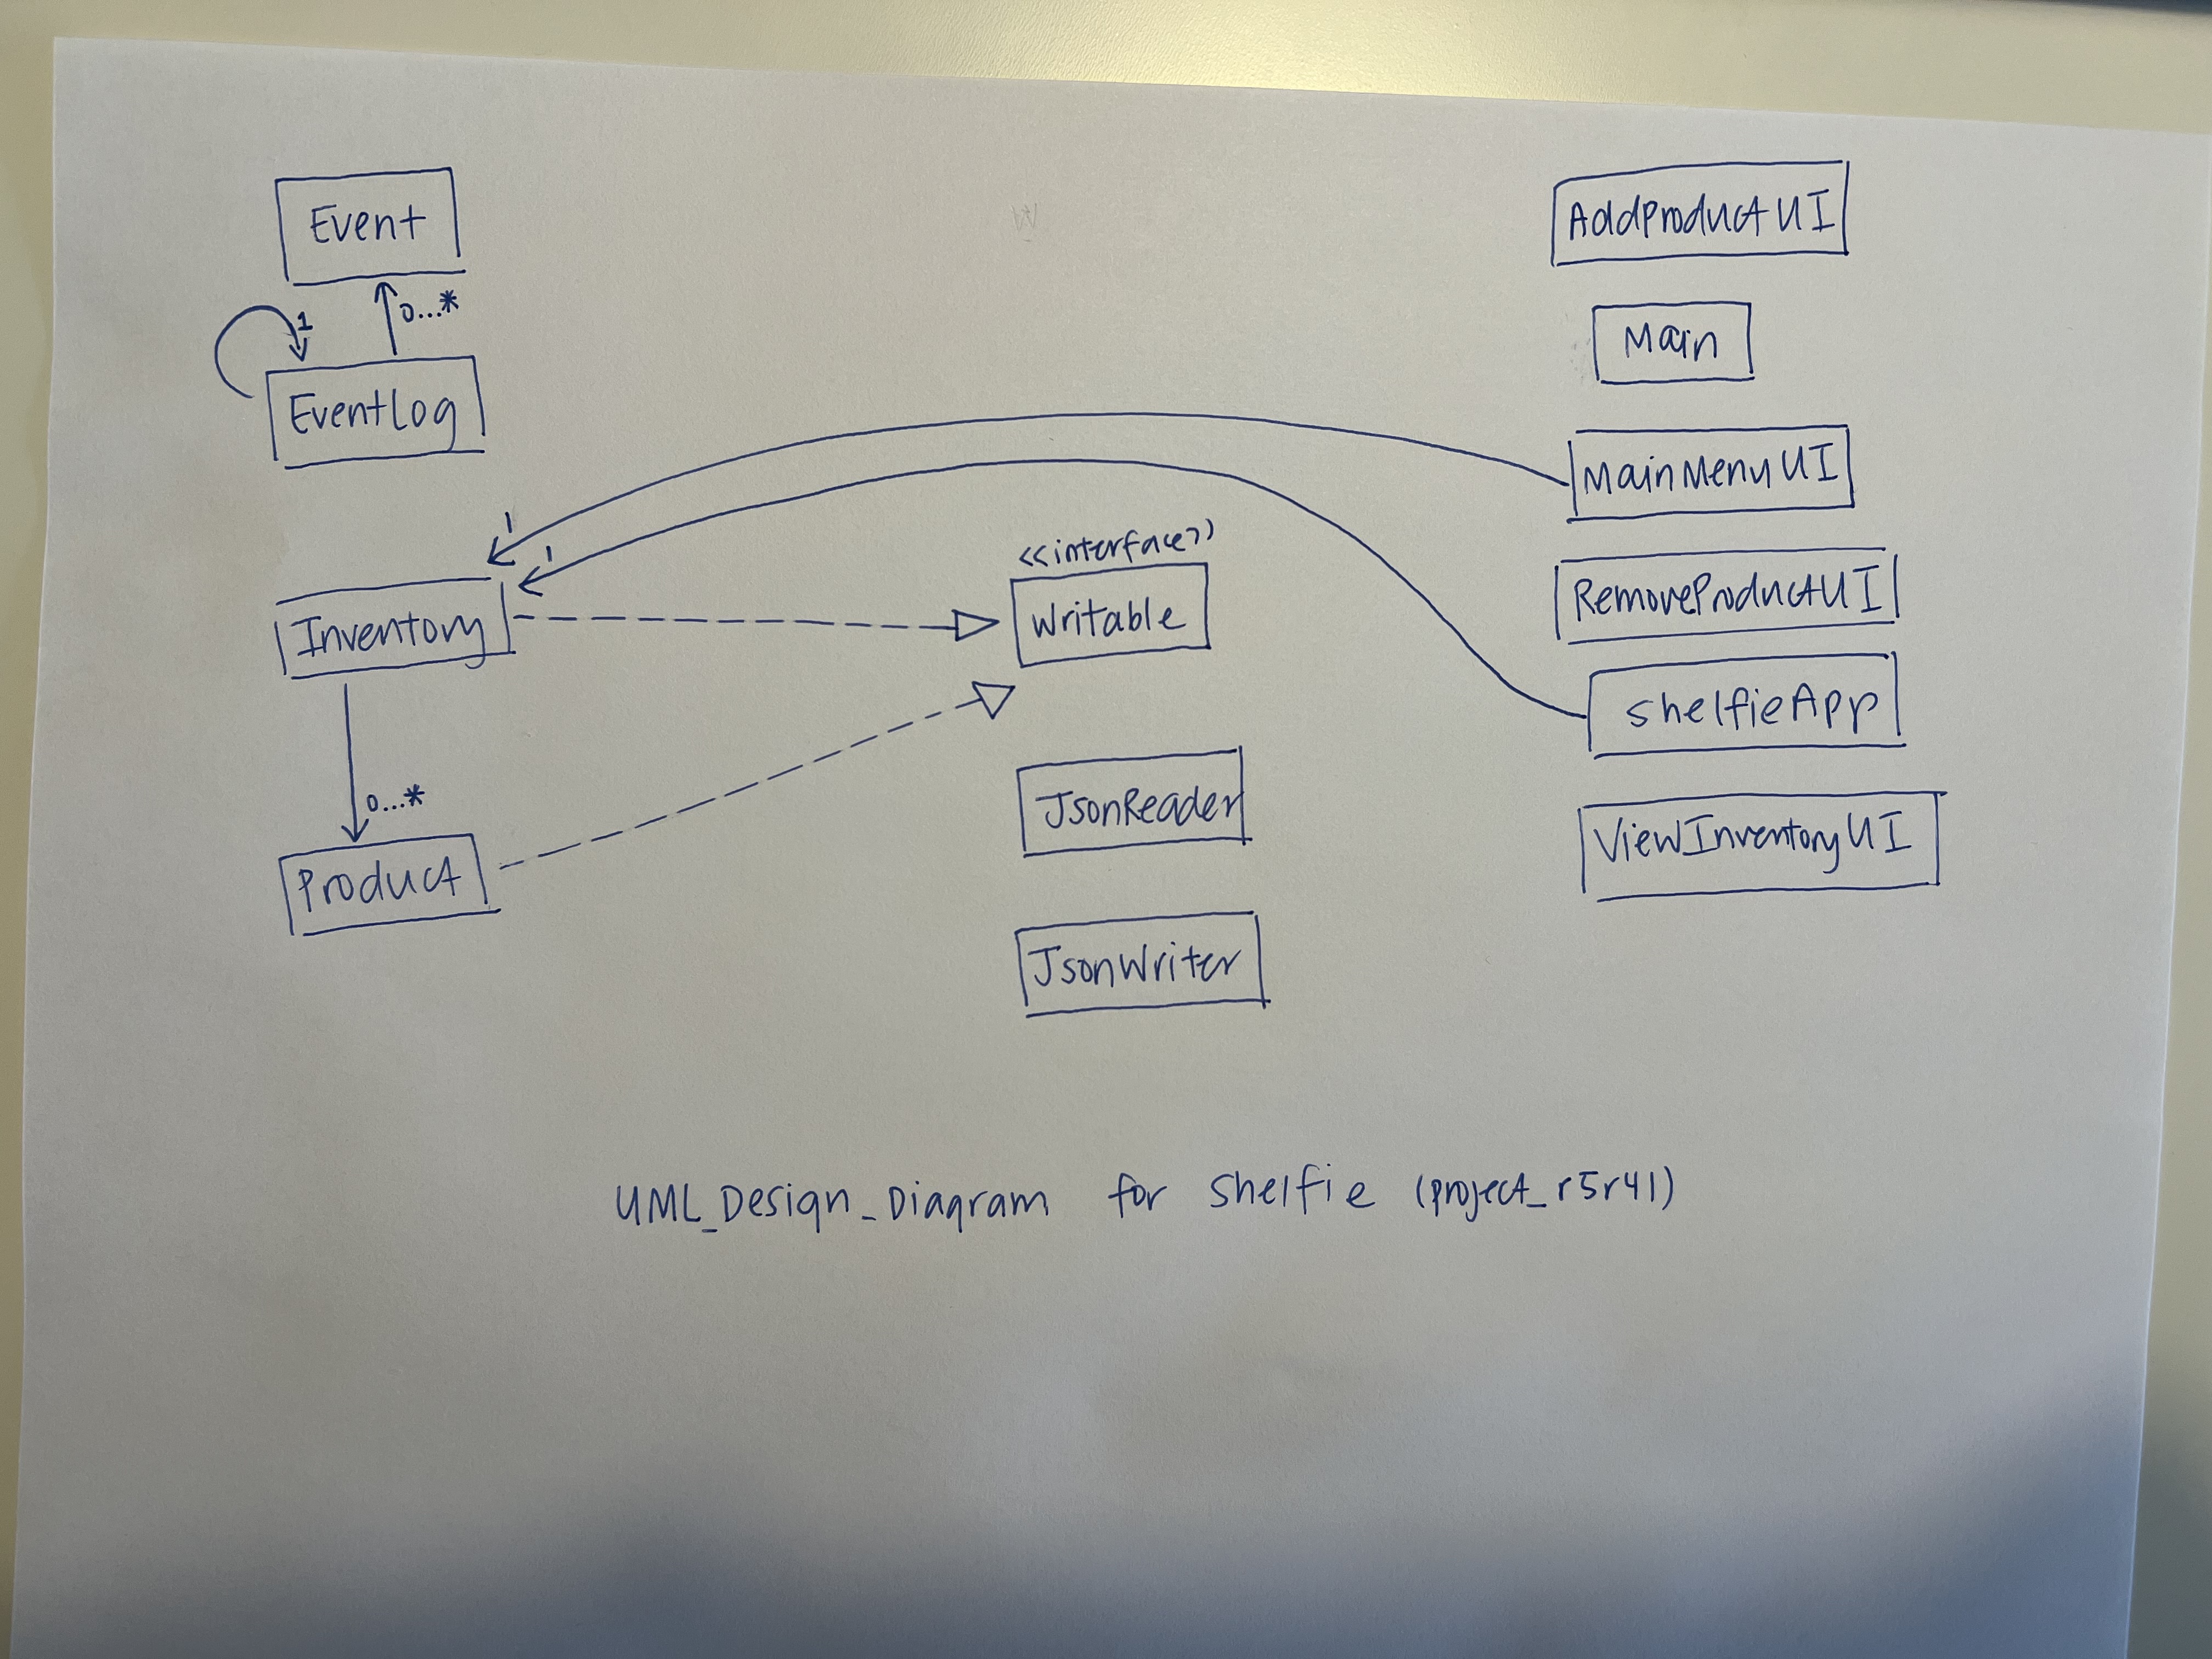 Event
0...*
1
EventLog
Inventory
0...*
Product
1
1
<<interface>>
Writable
JsonReader
JsonWriter
AddProductUI
Main
MainMenuUI
RemoveProductUI
ShelfieApp
ViewInventoryUI
UML_Design_Diagram for Shelfie (project_r5r4l)